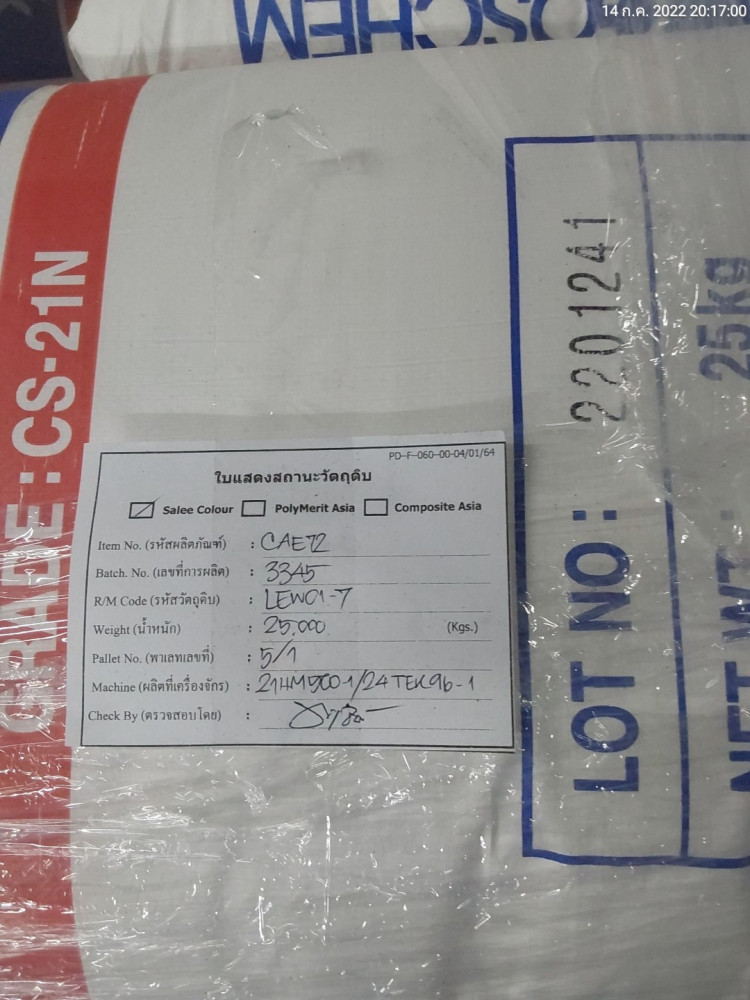 14 ก.ค. 2022 20:17:00
OSCHEM
GRADE : CS-21N
PD-F-060-00-04/01/64
ใบแสดงสถานะวัตถุดิบ
Salee Colour PolyMerit Asia Composite Asia
Item No. (รหัสผลิตภัณฑ์) : CAE72
Batch. No. (เลขที่การผลิต) : 3345
R/M Code (รหัสวัตถุดิบ) : LEW01-7
Weight (น้ำหนัก) : 25.000 (Kgs.)
Pallet No. (พาเลทเลขที่) : 5/1
Machine (ผลิตที่เครื่องจักร) : 21HM500-1/24TEK96-1
Check By (ตรวจสอบโดย) :
LOT NO : 2201241
NET WT. : 25kg